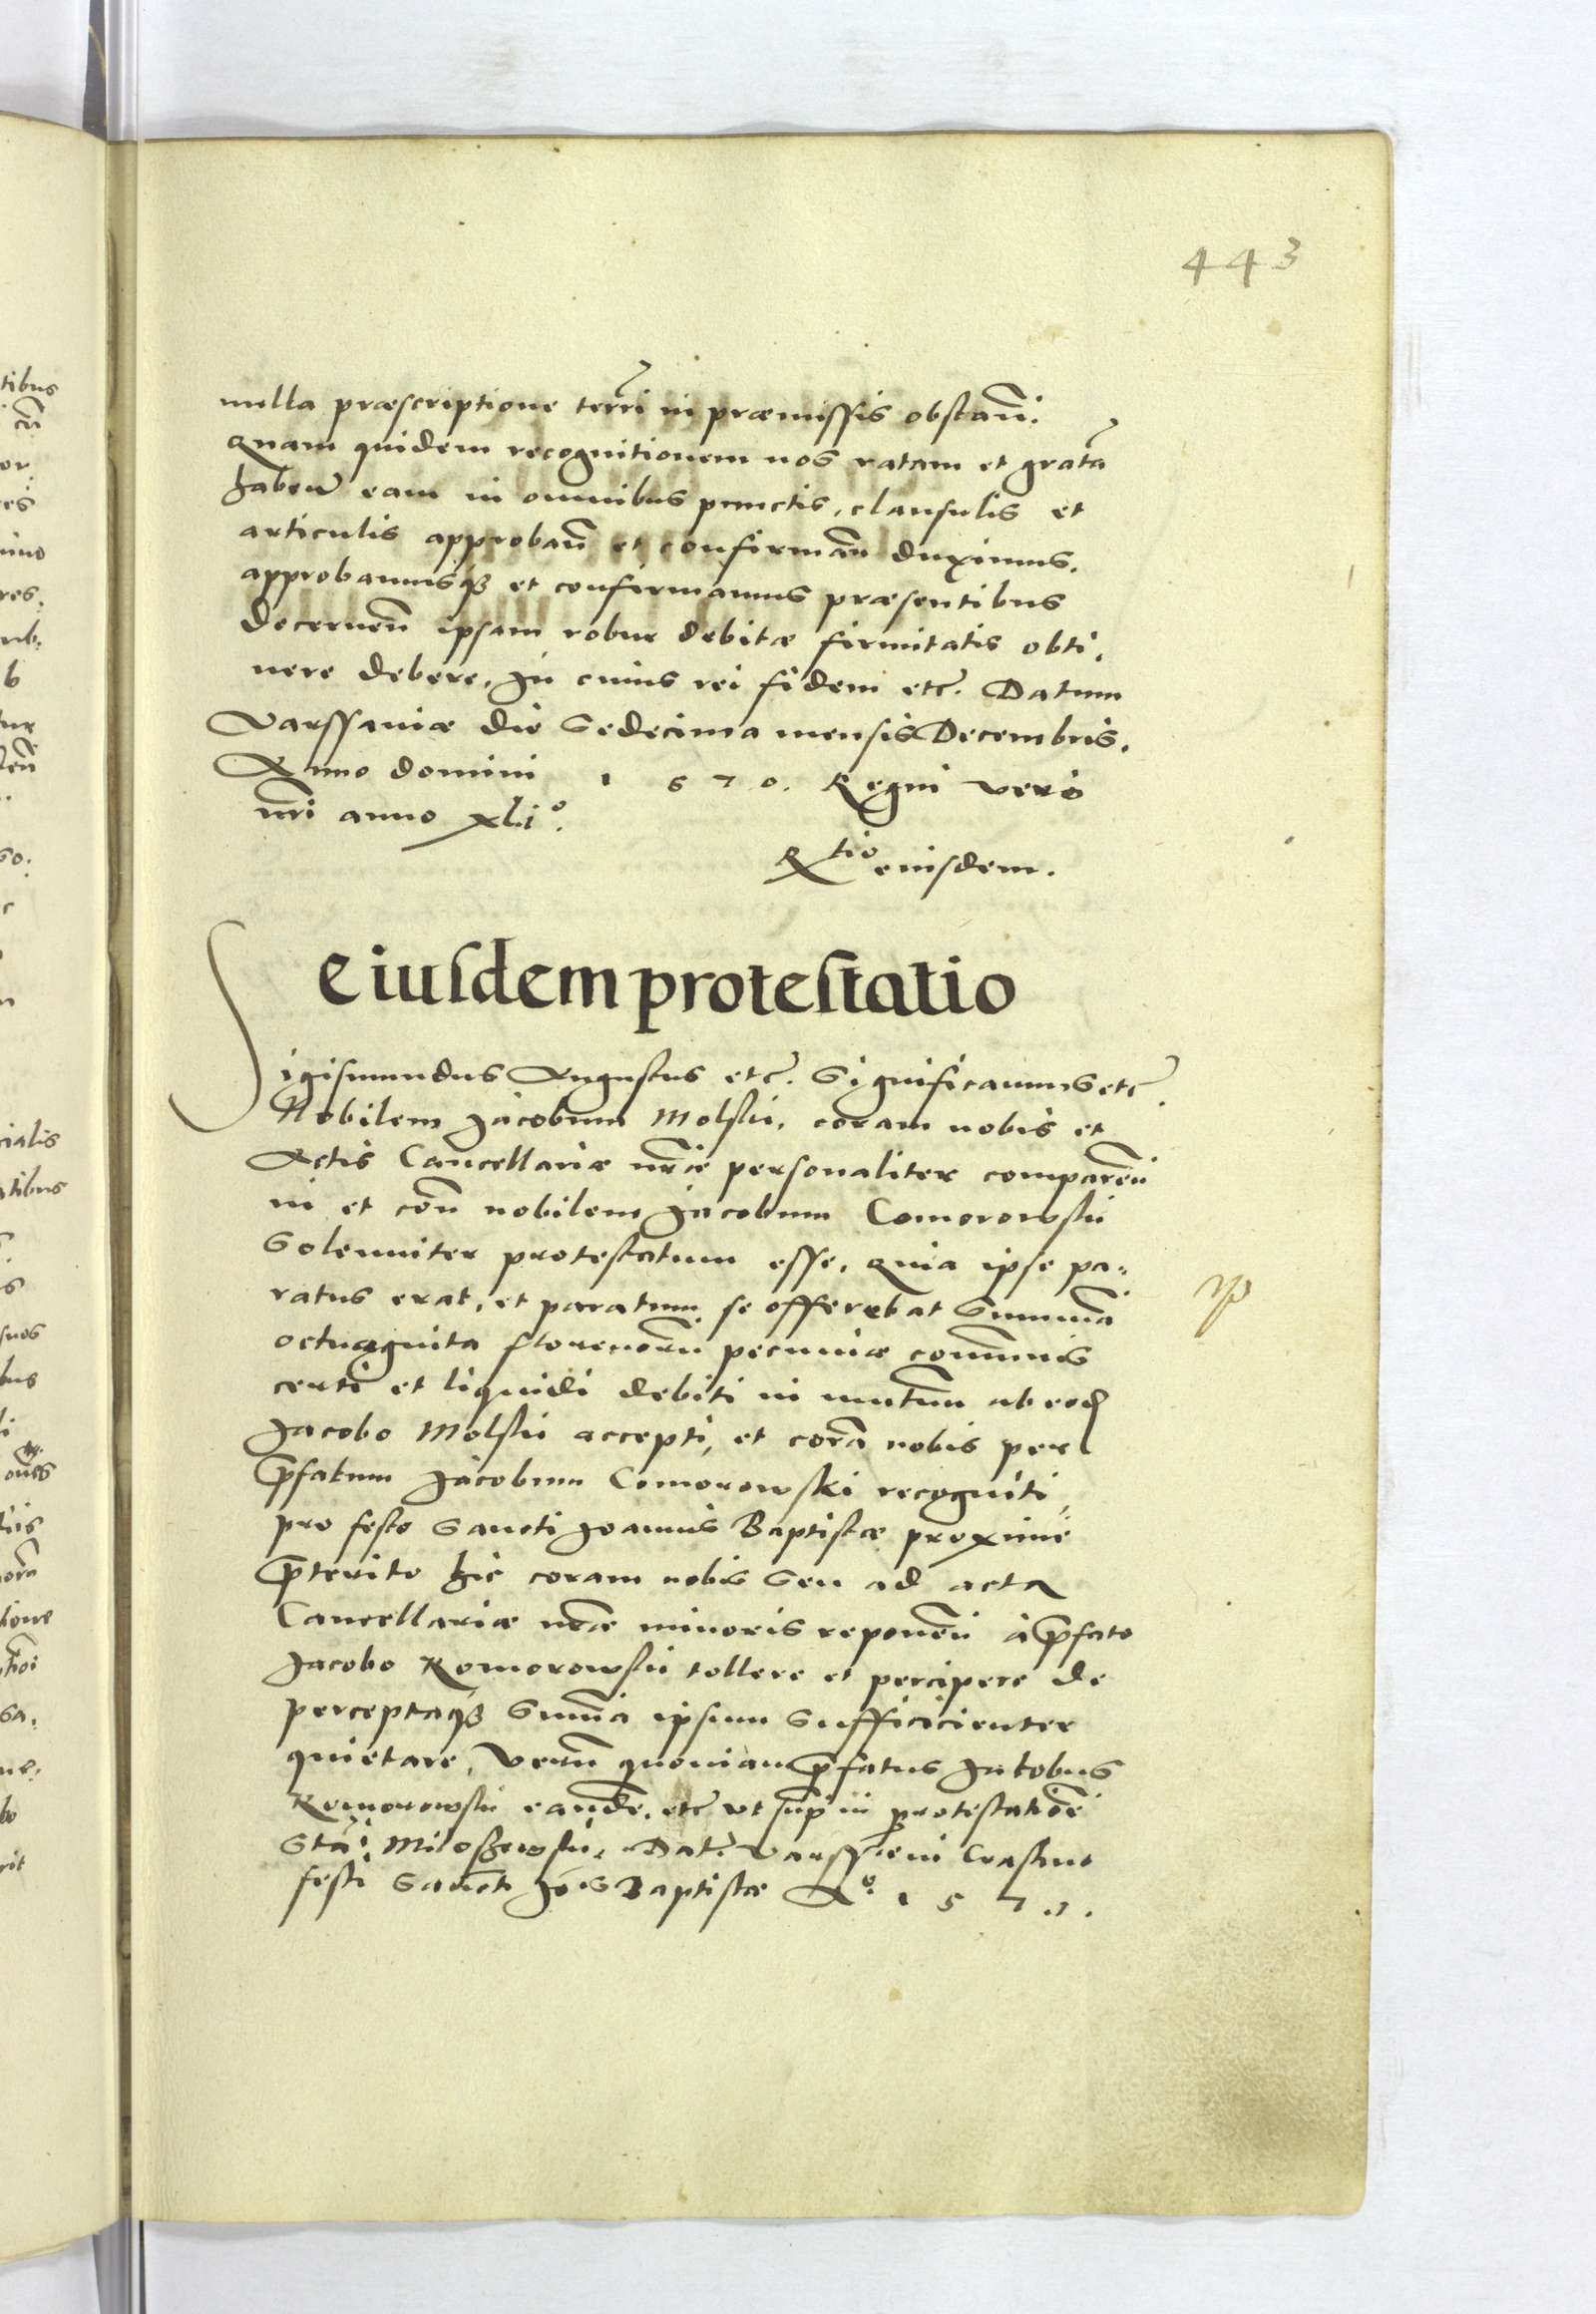 443
nulla præscriptione terr̃ri in præmissis obstan̄.
Quam quidem recognitionem nos ratam et gratā
haben̄ eam in omnibus punctis, clausulis et
articulis approban̄ et confirman̄ duximus.
approbamusqȝ et confirmamus præsentibus
decernen̄ ipsam robur debitæ firmitatis obti,
nere debere. In cuius rei fidem etc̃. Datum
Varssaviæ die Sedecima mensis Decembris.
Anno domini 1570. Regni vero
nr̄i anno xli°.
R̃tio eiusdem.
eiusdem protestatio
Sigismundus Augustus etc̃. Significamus etc̃.
Nobilem Jacobum Molski, coram nobis et
Actis Cancellariæ nr̄æ personaliter comparen̄
in et con̄ nobilem Jacobum Comorowski
Solenniter protestatum esse, quia ipse pa-
ratus erat, et paratum se offerebat Summā
octuaginta florenorū pecuniæ com̄unis
certi et liquidi debiti in mutuum ab eod̄
Jacobo Molski accepti, et corā nobis per
p̄fatum Jacobum Comorowski recogniti,
pro festo Sancti Joannis Baptistæ proximè
p̄terito hic coram nobis Seu ad acta
Cancellariæ nr̄æ minoris reponen̄ à p̄fato
Jacobo Komorowski tollere et percipere de
perceptaqȝ Sum̄a ipsum Sufficicienter
quietare, Verū quoniam p̄fatus Jakobus
Komorowski eandē. etc̃ ut sup̄ in protestatiōe
Stāi Miloszewski. Dat̃. Varssæ in Crastino
festi Sancti Jo͞is Baptistæ A° 1571.